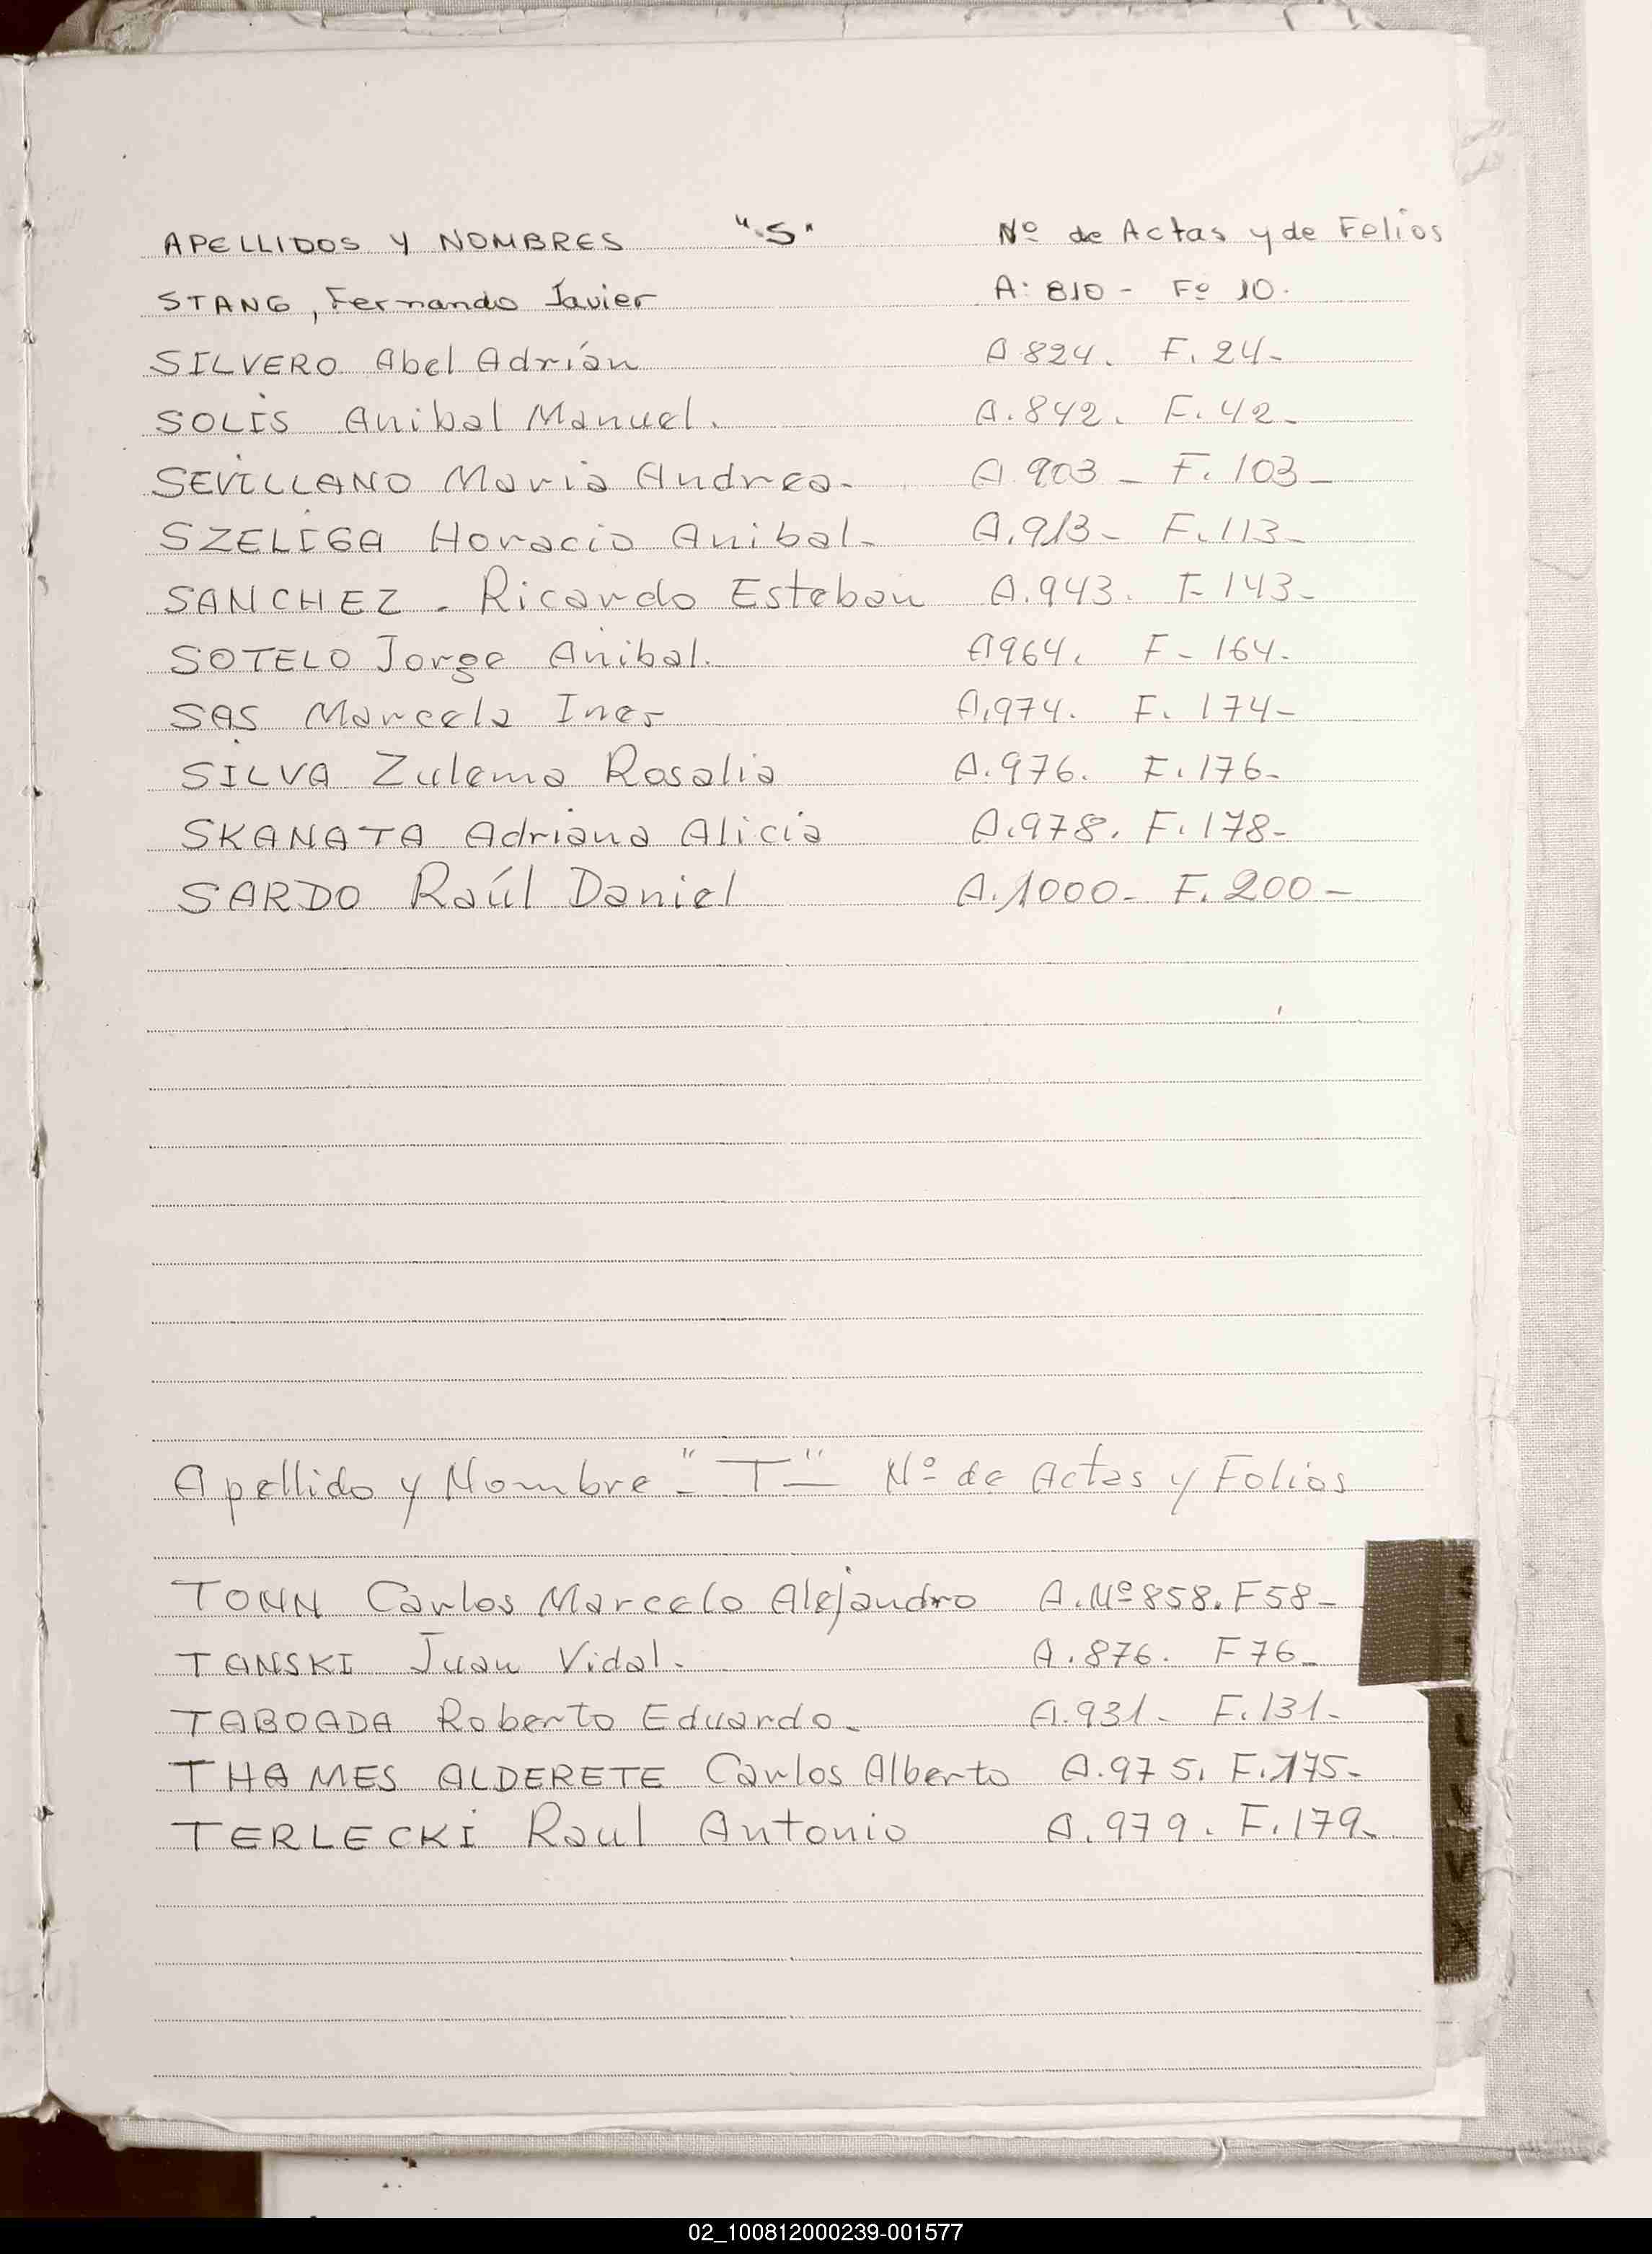 APELLIDOS Y NOMBRES "S" Nº de Actas y de Folios
STANG, Fernando Javier A: 810 - Fº 10.
SILVERO Abel Adrián A 824. F. 24-
SOLIS Anibal Manuel. A. 842. F. 42-
SEVILLANO Maria Andrea- A 903 - F. 103-
SZELIGA Horacio Anibal- A. 913- F. 113-
SANCHEZ - Ricardo Esteban A. 943. F- 143-
SOTELO Jorge Anibal. A 964. F- 164-
SAS Marcela Ines A. 974. F. 174-
SILVA Zulema Rosalia A. 976. F. 176-
SKANATA Adriana Alicia A. 978. F. 178-
SARDO Raúl Daniel A. 1000- F. 200-
Apellido y Nombre - "T" - Nº de Actas y Folios
TONN Carlos Marcelo Alejandro A. Nº 858. F 58-
TANSKI Juan Vidal. A. 876. F 76-
TABOADA Roberto Eduardo- A. 931- F. 131-
THAMES ALDERETE Carlos Alberto A. 975. F. 175-
TERLECKI Raul Antonio A. 979. F. 179-
02_100812000239-001577